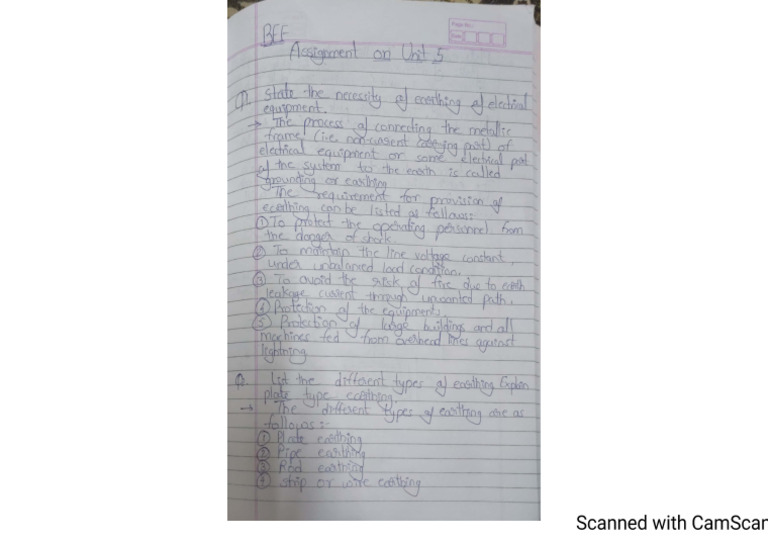 BEE
Assignment on Unit 5
Page No.:
Date
Q1. State the necessity of earthing of electrical
equipment.
→ The process of connecting the metallic
frame (i.e. non-current carrying part) of
electrical equipment or some electrical part
of the system to the earth is called
grounding or earthing
The requirement for provision of
earthing can be listed as follows:
① To protect the operating personnel from
the danger of shock.
② To maintain the line voltage constant,
under unbalanced load condition.
③ To avoid the risk of fire due to earth
leakage current through unwanted path.
④ Protection of the equipments.
⑤ Protection of large buildings and all
machines fed from overhead lines against
lightning
Q. List the different types of earthing Explain
plate type earthing.
→ The different types of earthing are as
follows:-
① Plate earthing
② Pipe earthing
③ Rod earthing
④ strip or wire earthing
Scanned with CamScan